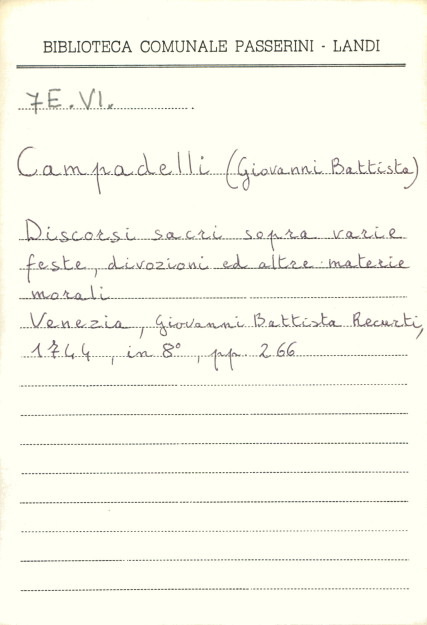 BIBLIOTECA COMUNALE PASSERINI - LANDI
7E.VI.
Campadelli (Giovanni Battista)
Discorsi sacri sopra varie
feste, divozioni ed altre materie
morali
Venezia, Giovanni Battista Recurti,
1744, in 8°, pp. 266